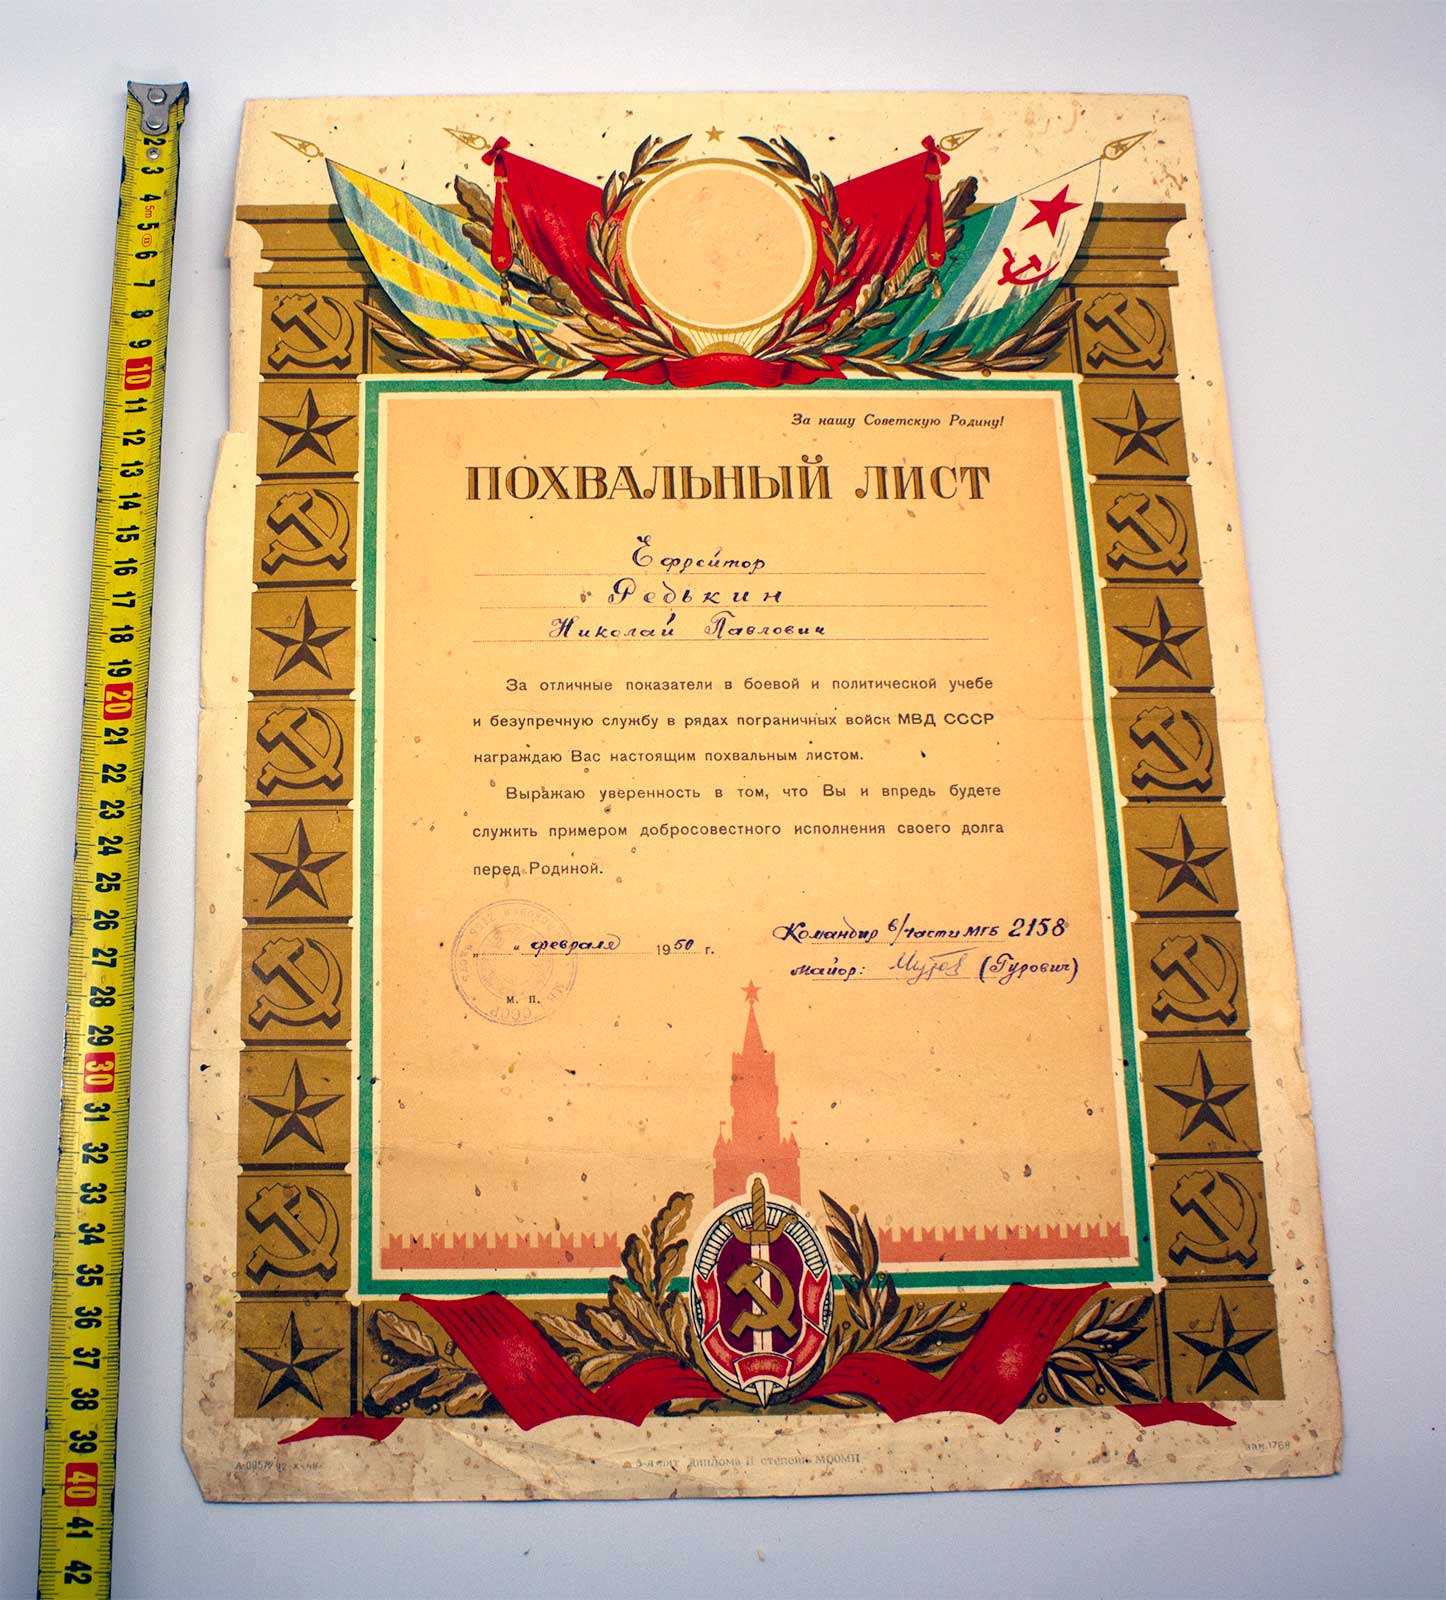 За нашу Советскую Родину!
ПОХВАЛЬНЫЙ ЛИСТ
Ефрейтор
Редькин
Николай Павлович
За отличные показатели в боевой и политической учебе
и безупречную службу в рядах пограничных войск МВД СССР
награждаю Вас настоящим похвальным листом.
Выражаю уверенность в том, что Вы и впредь будете
служить примером добросовестного исполнения своего долга
перед Родиной.
" " февраля 1950 г.
Командир в/части МГБ 2158
Майор: (Гурович)
м. п.
СССР
зак. 1768
диплома II степени
5m
2
3
4
5
6
7
8
9
10
11
12
13
14
15
16
17
18
19
20
21
22
23
24
25
26
27
28
29
30
31
32
33
34
35
36
37
38
39
40
41
42